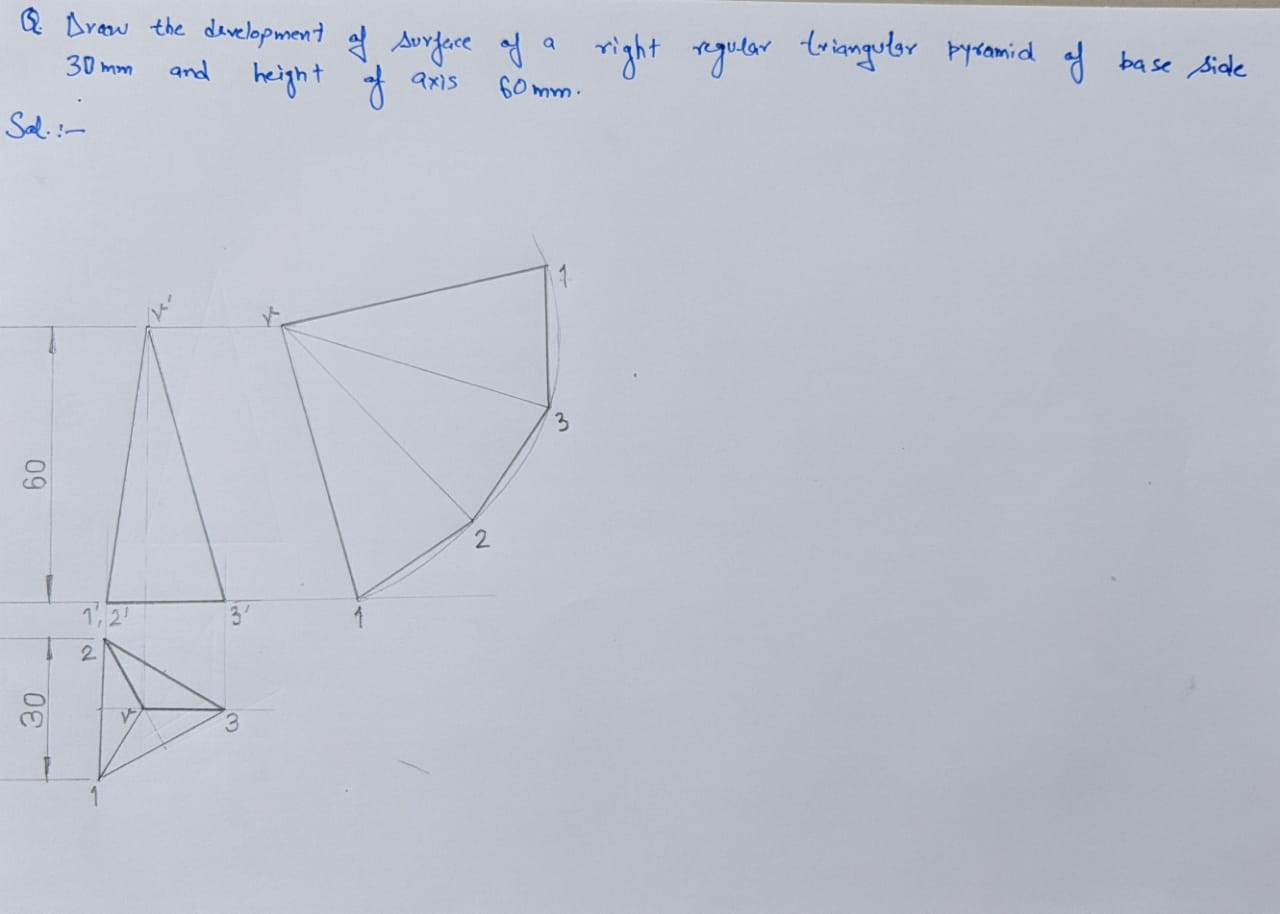 Q. Draw the development of surface of a right regular triangular pyramid of base side
30 mm and height of axis 60 mm.
Sol. :-
v'
v
1
60
3
2
1', 2'
3'
1
2
30
v
3
1